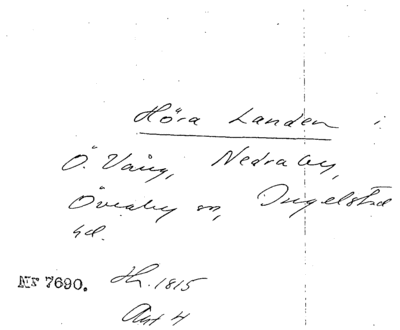 Höra Landen i
Ö. Vång, Nedraby,
Övraby sn, Ingelstad
hd.
Nr 7690. Hr. 1815
Avt 4